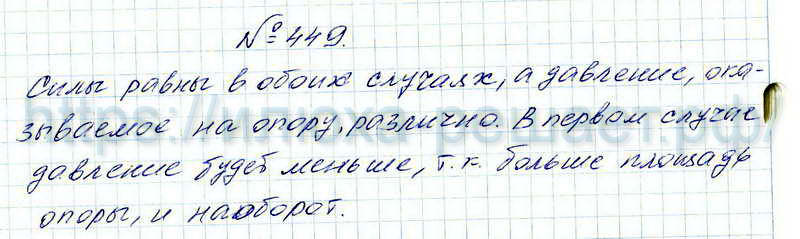 № 449.
Силы равны в обоих случаях, а давление, ока-
зываемое на опору, различно. В первом случае
давление будет меньше, т.к. больше площадь
опоры, и наоборот.